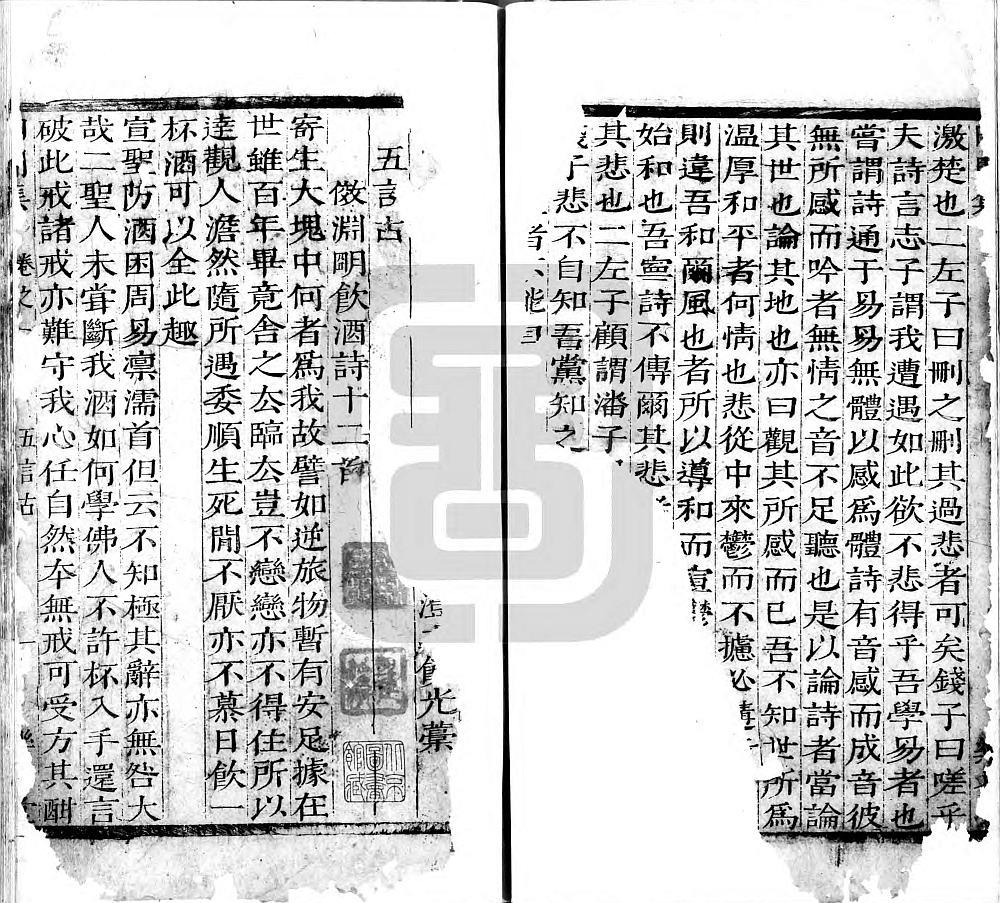 激楚也二左子曰刪之刪其過悲者可矣錢子曰嗟乎
夫詩言志子謂我遭遇如此欲不悲得乎吾學易者也
嘗謂詩通于易易無體以感爲體詩有音感而成音彼
無所感而吟者無情之音不足聽也是以論詩者當論
其世也論其地也亦曰觀其所感而已吾不知世所爲
溫厚和平者何情也悲從中來鬱而不攄必
則違吾和爾風也者所以導和而宣
始和也吾寧詩不傳爾其悲
其悲也二左子顧謂潘子
子悲不自知吾黨知之
者不能
光藁
五言古
倣淵明飲酒詩十二首
寄生大塊中何者爲我故譬如逆旅物暫有安足據在
世雖百年畢竟舍之厺臨厺豈不戀戀亦不得住所以
達觀人澹然隨所遇委順生死間不厭亦不慕日飲一
杯酒可以全此趣
宣聖防酒困周易凛濡首但云不知極其辭亦無咎大
哉二聖人未甞斷我酒如何學佛人不許杯入手還言
破此戒諸戒亦難守我心任自然夲無戒可受方其酣
集 卷之一 五言古 一